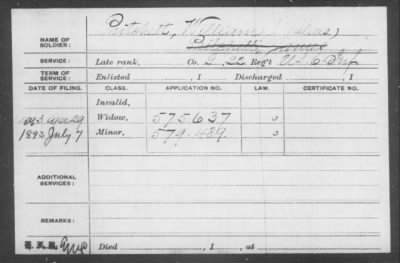 NAME OF SOLDIER:
Pritchett, William (alias)
Pritchett, James
SERVICE:
Late rank, Co. I, 22 Reg't U.S.C. Inf
TERM OF SERVICE:
Enlisted , 1 Discharged , 1
DATE OF FILING. CLASS. APPLICATION NO. LAW. CERTIFICATE NO.
Invalid,
1893 Apr 29 Widow, 575637 o
1893 July 7 Minor, 579.439. o
ADDITIONAL SERVICES:
REMARKS:
Died , 1 , at